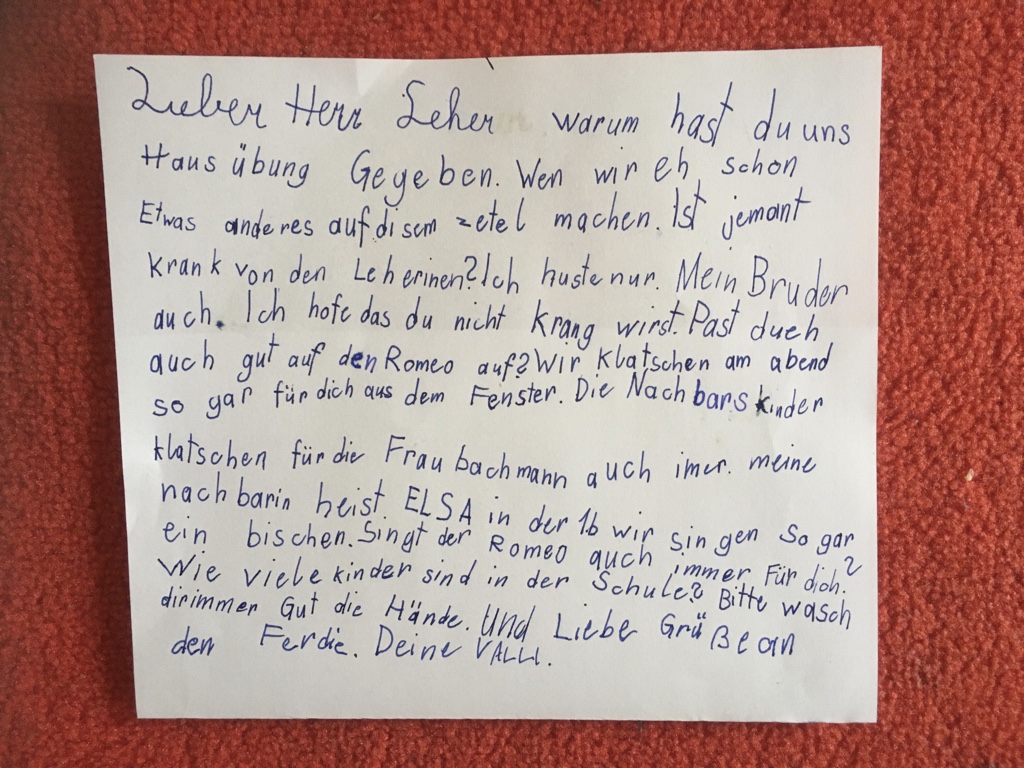 Lieber Herr Leher warum hast du uns
Haus übung Gegeben. Wen wir eh schon
Etwas anderes auf disem zetel machen. Ist jemant
krank von den Leherinen? Ich huste nur. Mein Bruder
auch. Ich hofe das du nicht Krang wirst. Past dueh
auch gut auf den Romeo auf? Wir klatschen am abend
so gar für dich aus dem Fenster. Die Nachbarskinder
klatschen für die Frau bachmann auch imer. meine
nachbarin heist ELSA in der 1b wir singen So gar
ein bischen. Singt der Romeo auch immer Für dich?
Wie viele kinder sind in der Schule? Bitte wasch
dir immer Gut die Hände. Und Liebe Grüße an
den Ferdie. Deine VALLI.